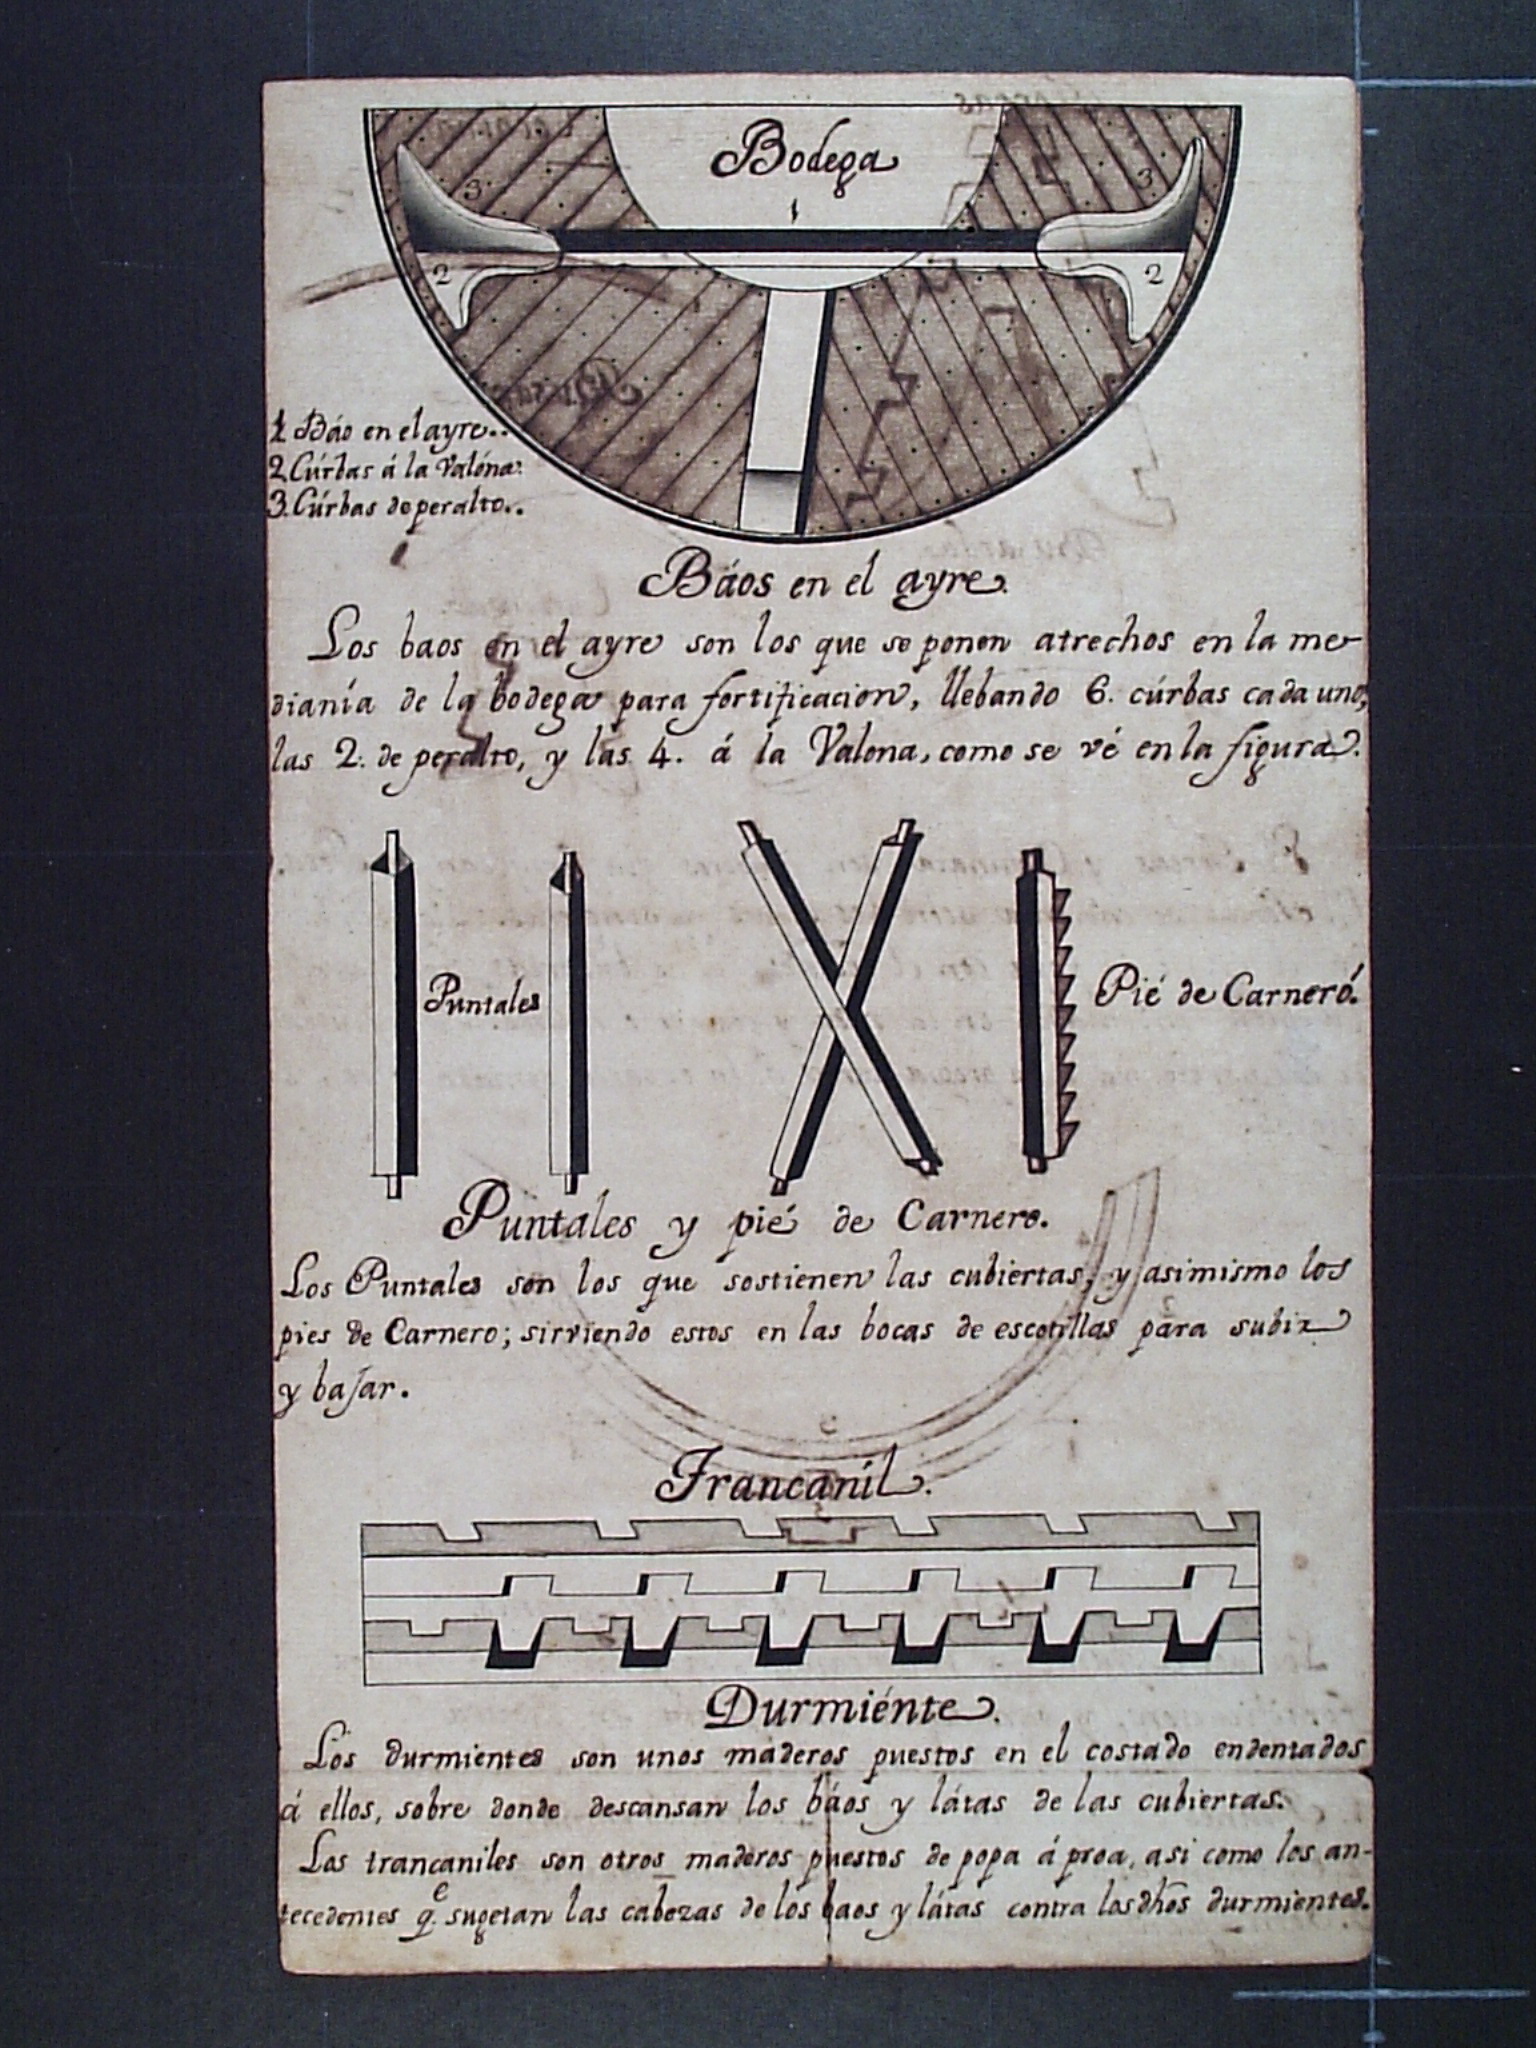 Bodega
1
3
3
2
2
1. Báo en el ayre..
2. Cúrbas á la Valóna.
3. Cúrbas de peralto..
Báos en el ayre.
Los baos en el ayre son los que se ponen atrechos en la me-
dianía de la bodega para fortificacion, llebando 6. cúrbas cada uno,
las 2. de peralto, y las 4. á la Valona, como se vé en la figura.
Puntales
Pié de Carneró.
Puntales y pié de Carnero.
Los Puntales son los que sostienen las cubiertas, y asimismo los
pies de Carnero; sirviendo estos en las bocas de escotillas para subir
y bajar.
Trancaníl.
Durmiénte.
Los durmientes son unos maderos puestos en el costado endentados
á ellos, sobre donde descansan los báos y látas de las cubiertas.
Los trancaniles son otros maderos puestos de popa á proa, asi como los an-
tecedentes q.e sugetan las cabezas de los baos y látas contra los dhos durmientes.